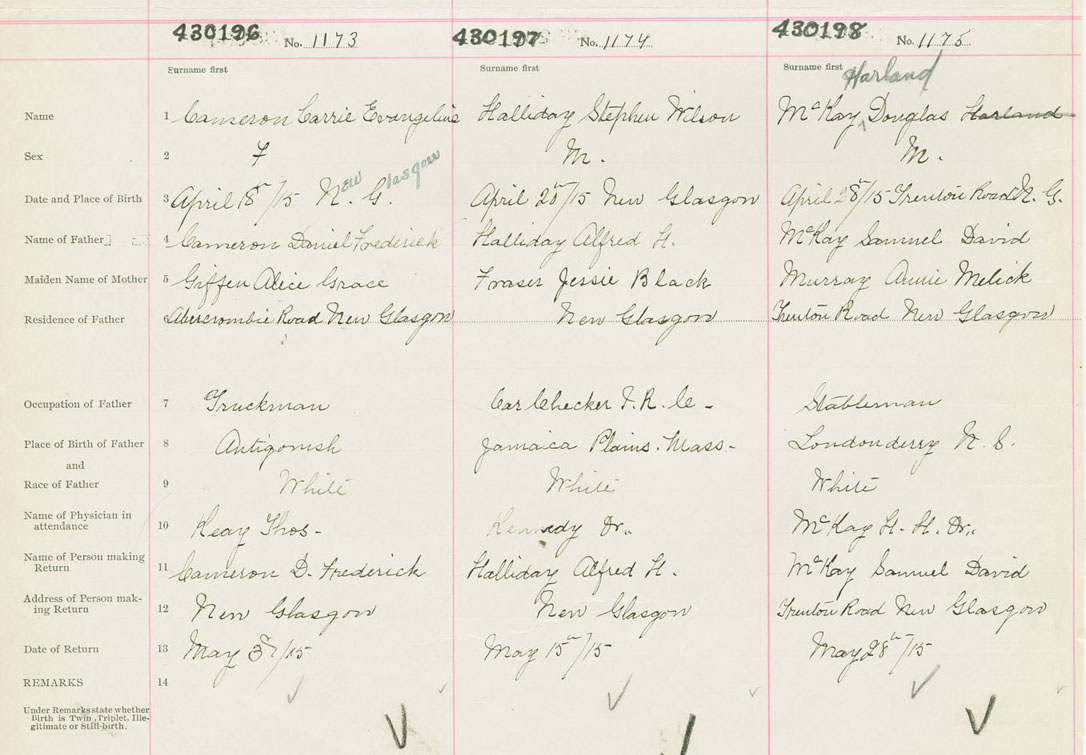 430196 No. 1173 430197 No. 1174 430198 No. 1175
Surname first Surname first Surname first Harland
Name 1 Cameron Carrie Evangeline Halliday Stephen Wilson McKay Douglas Harland
Sex 2 F M. M.
Date and Place of Birth 3 April 18th/15 N. G. New Glasgow April 25th/15 New Glasgow April 28th/15 Trenton Road N. G.
Name of Father 4 Cameron Daniel Frederick Halliday Alfred H. McKay Samuel David
Maiden Name of Mother 5 Giffen Alice Grace Fraser Jessie Black Murray Annie Melick
Residence of Father 6 Abercrombie Road New Glasgow New Glasgow Trenton Road New Glasgow
Occupation of Father 7 Truckman Car Checker I. R. C. Stableman
Place of Birth of Father 8 Antigonish Jamaica Plains. Mass- Londonderry N. S.
and
Race of Father 9 White White White
Name of Physician in
attendance 10 Keay Thos- Kennedy Dr. McKay H. H. Dr.
Name of Person making
Return 11 Cameron D. Frederick Halliday Alfred H. McKay Samuel David
Address of Person mak-
ing Return 12 New Glasgow New Glasgow Trenton Road New Glasgow
Date of Return 13 May /15 May 15th/15 May 28th/15
REMARKS 14
Under Remarks state whether
Birth is Twin, Triplet, Ille-
gitimate or Still-birth.